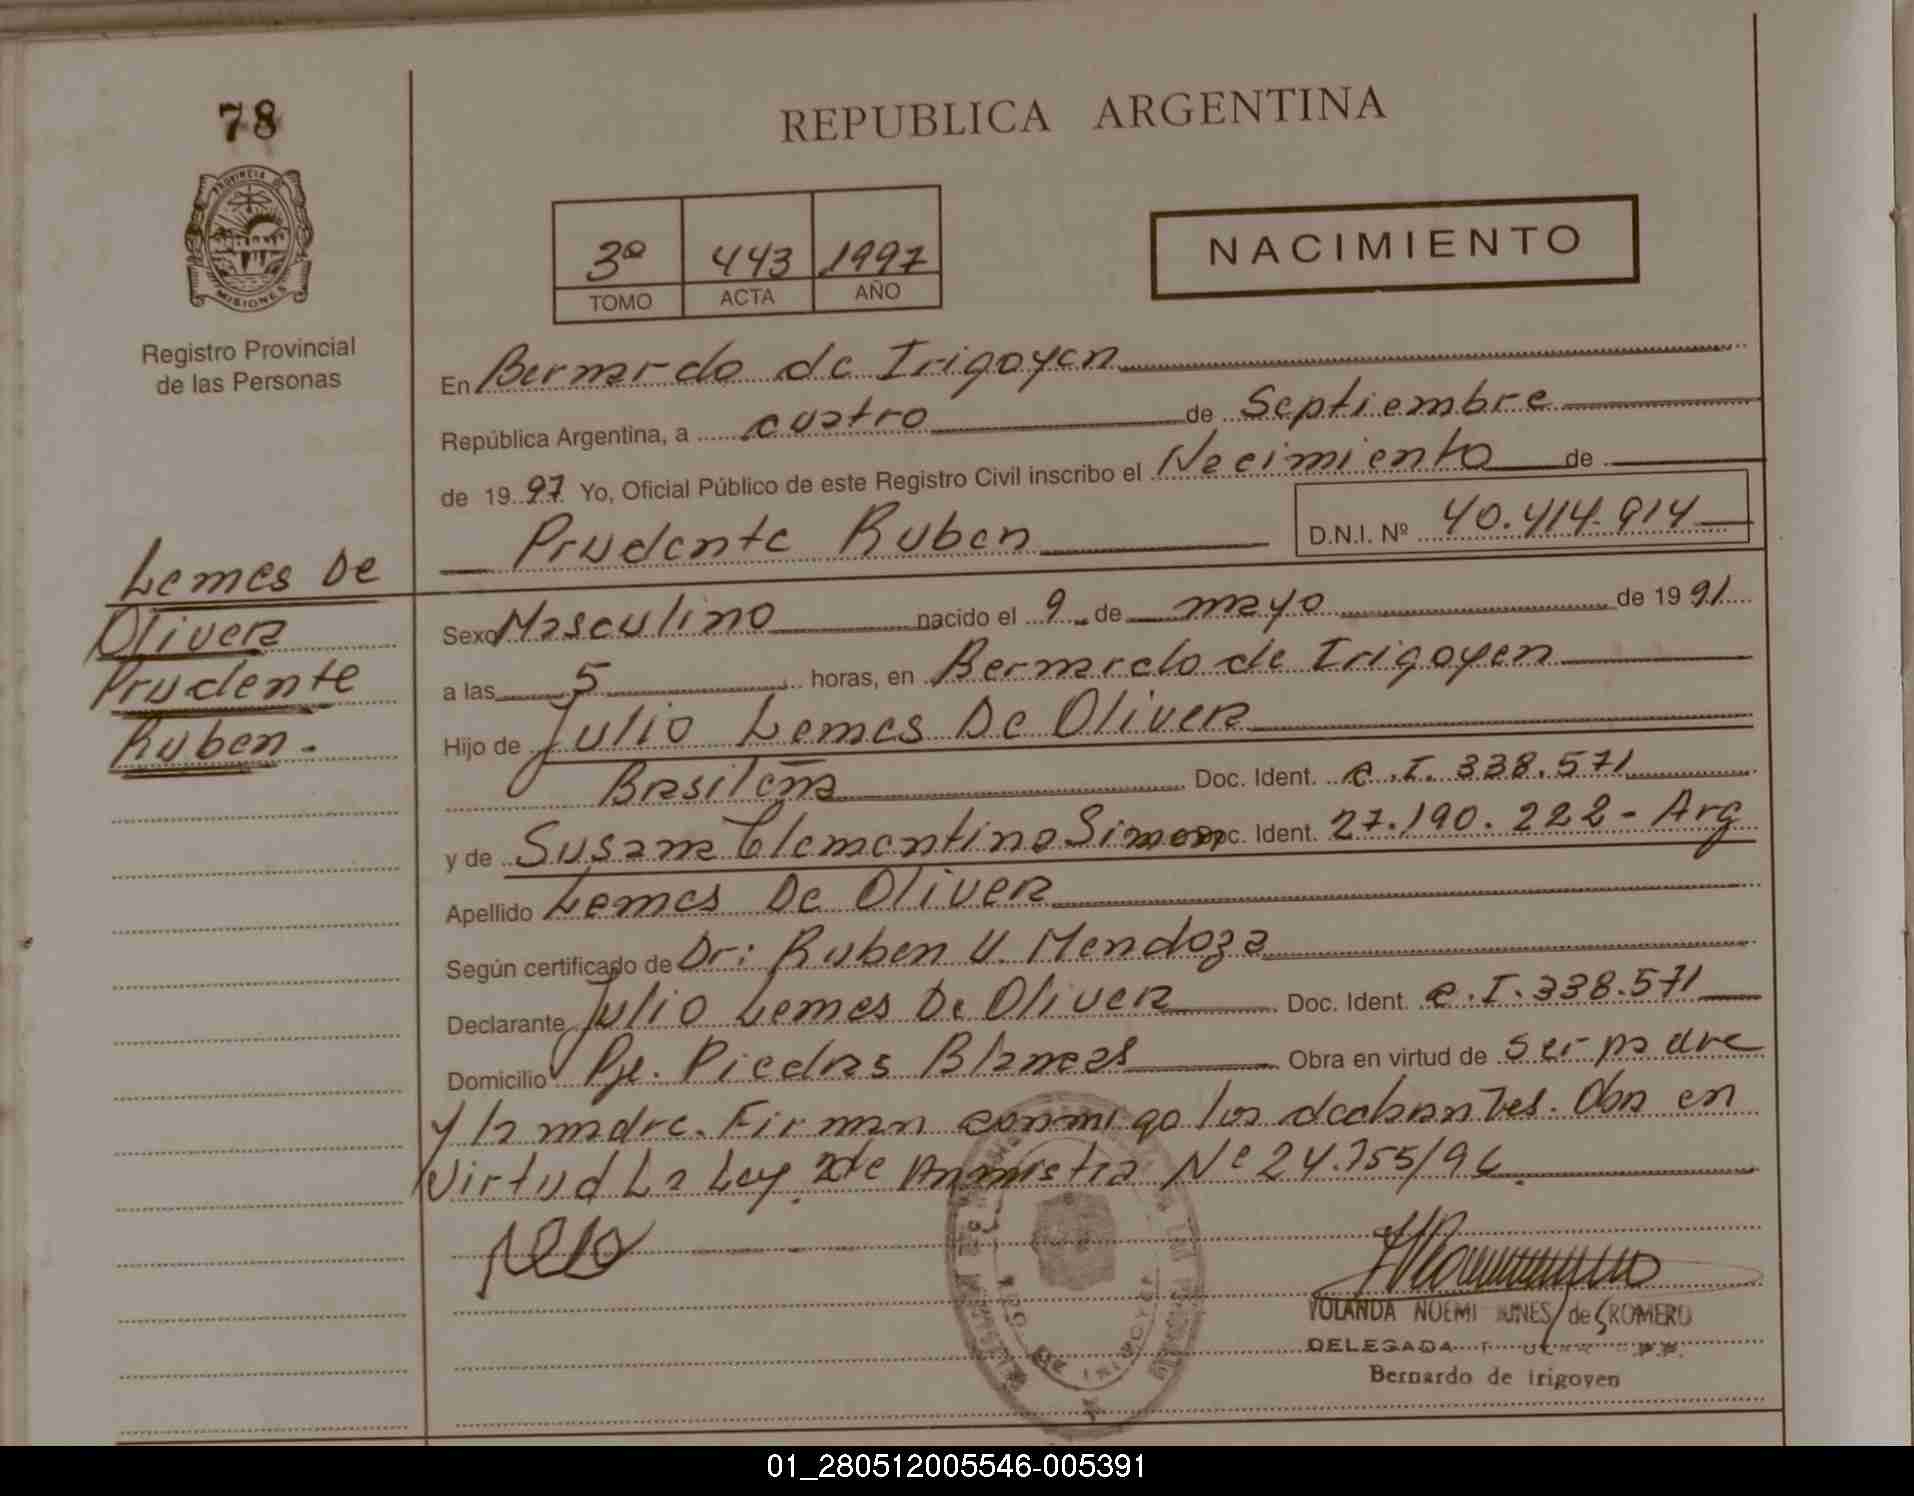 78
REPUBLICA ARGENTINA
PROVINCIA DE
MISIONES
Registro Provincial
de las Personas
3º 443 1997
TOMO ACTA AÑO
NACIMIENTO
En Bernardo de Irigoyen
República Argentina, a cuatro de Septiembre
de 1997 Yo, Oficial Público de este Registro Civil inscribo el Nacimiento de
Prudente Ruben D.N.I. Nº 40.414.914
Lemes De
Olivera
Prudente
Ruben.
Sexo Masculino nacido el 9 de mayo de 1991
a las 5 horas, en Bernardo de Irigoyen
Hijo de Julio Lemes De Olivera
Brasileña Doc. Ident. C.I. 338.571
y de Susana Clementina Simon Doc. Ident. 27.190.222 - Arg
Apellido Lemes De Olivera
Según certificado de Dr: Ruben U. Mendoza
Declarante Julio Lemes De Olivera Doc. Ident. C.I. 338.571
Domicilio Pje. Piedras Blancas Obra en virtud de ser padre
y la madre. Firman conmigo los declarantes. Obra en
virtud La Ley de Amnistia Nº 24.755/96
YOLANDA NOEMI de ROMERO
DELEGADA
Bernardo de Irigoyen
01_280512005546-005391